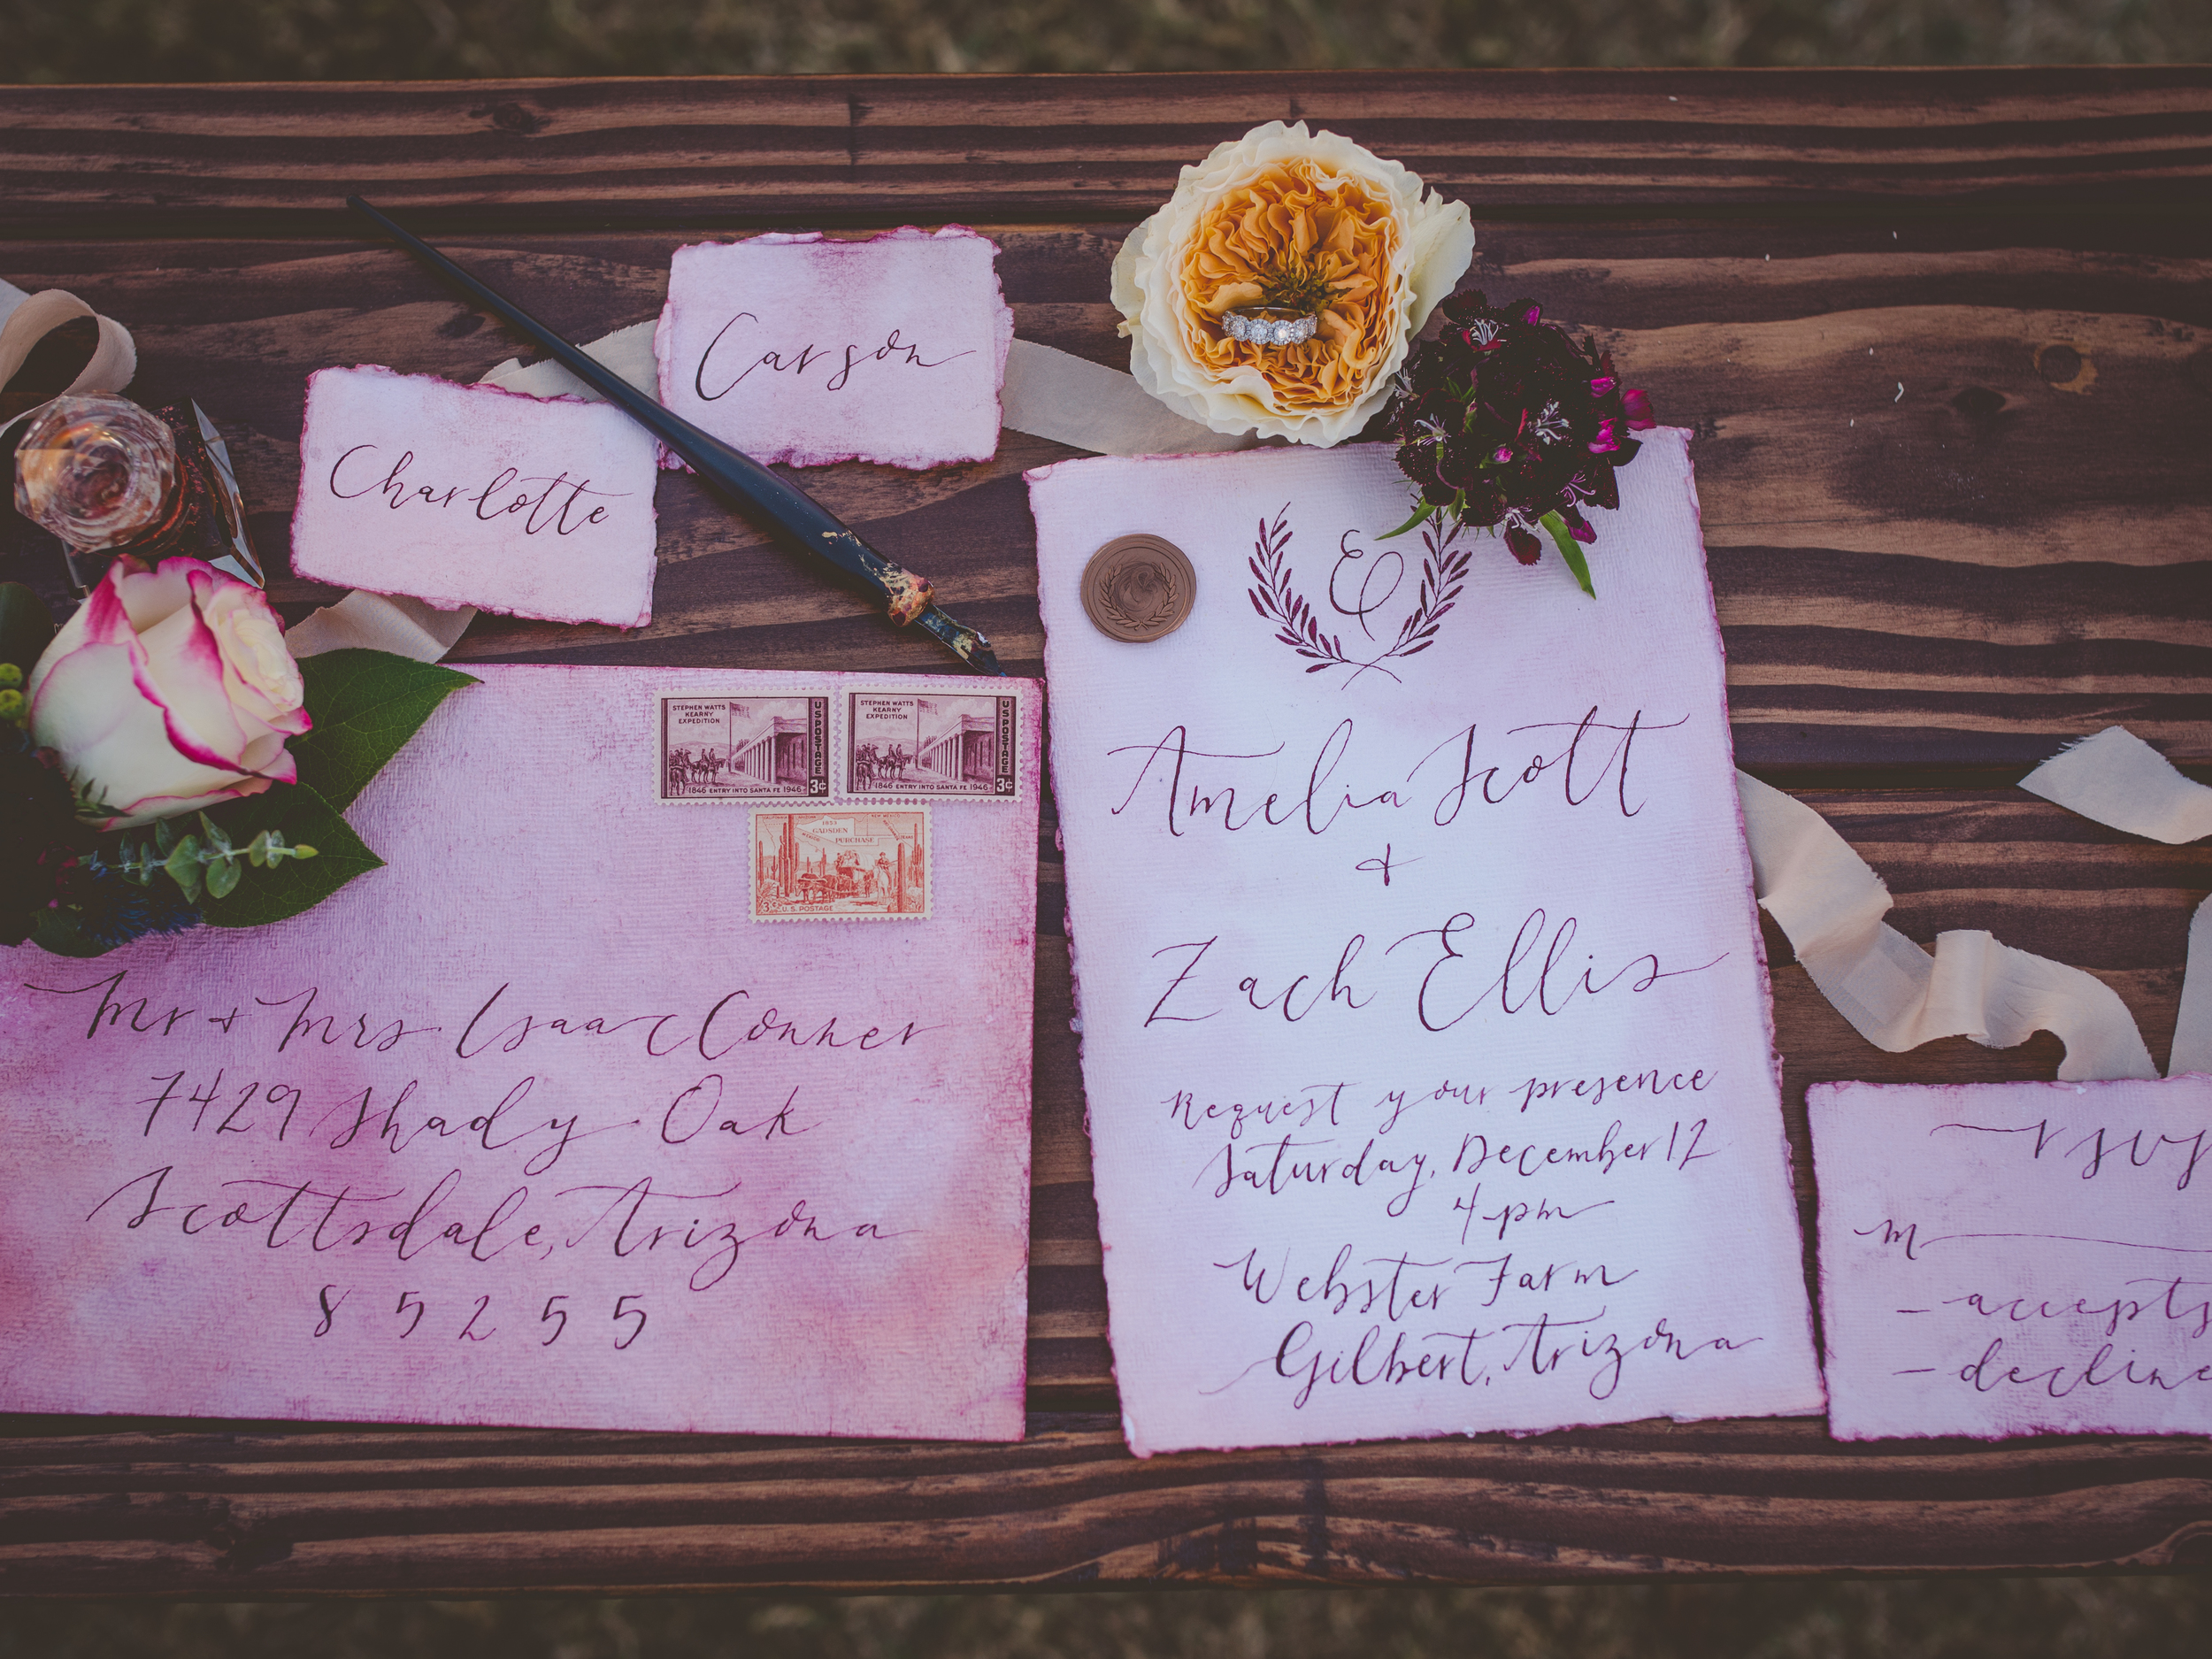 Carson
Charlotte
STEPHEN WATTS
KEARNY
EXPEDITION
U S POSTAGE
1846 ENTRY INTO SANTA FE 1946
3¢
STEPHEN WATTS
KEARNY
EXPEDITION
U S POSTAGE
1846 ENTRY INTO SANTA FE 1946
3¢
1853
GADSDEN
PURCHASE
3¢ U.S. POSTAGE
Mr + Mrs Isaac Conner
7429 Shady Oak
Scottsdale, Arizona
85255
E
Amelia Scott
+
Zach Ellis
Request your presence
Saturday, December 12
4 pm
Webster Farm
Gilbert, Arizona
rsvp
M
accepts
decline